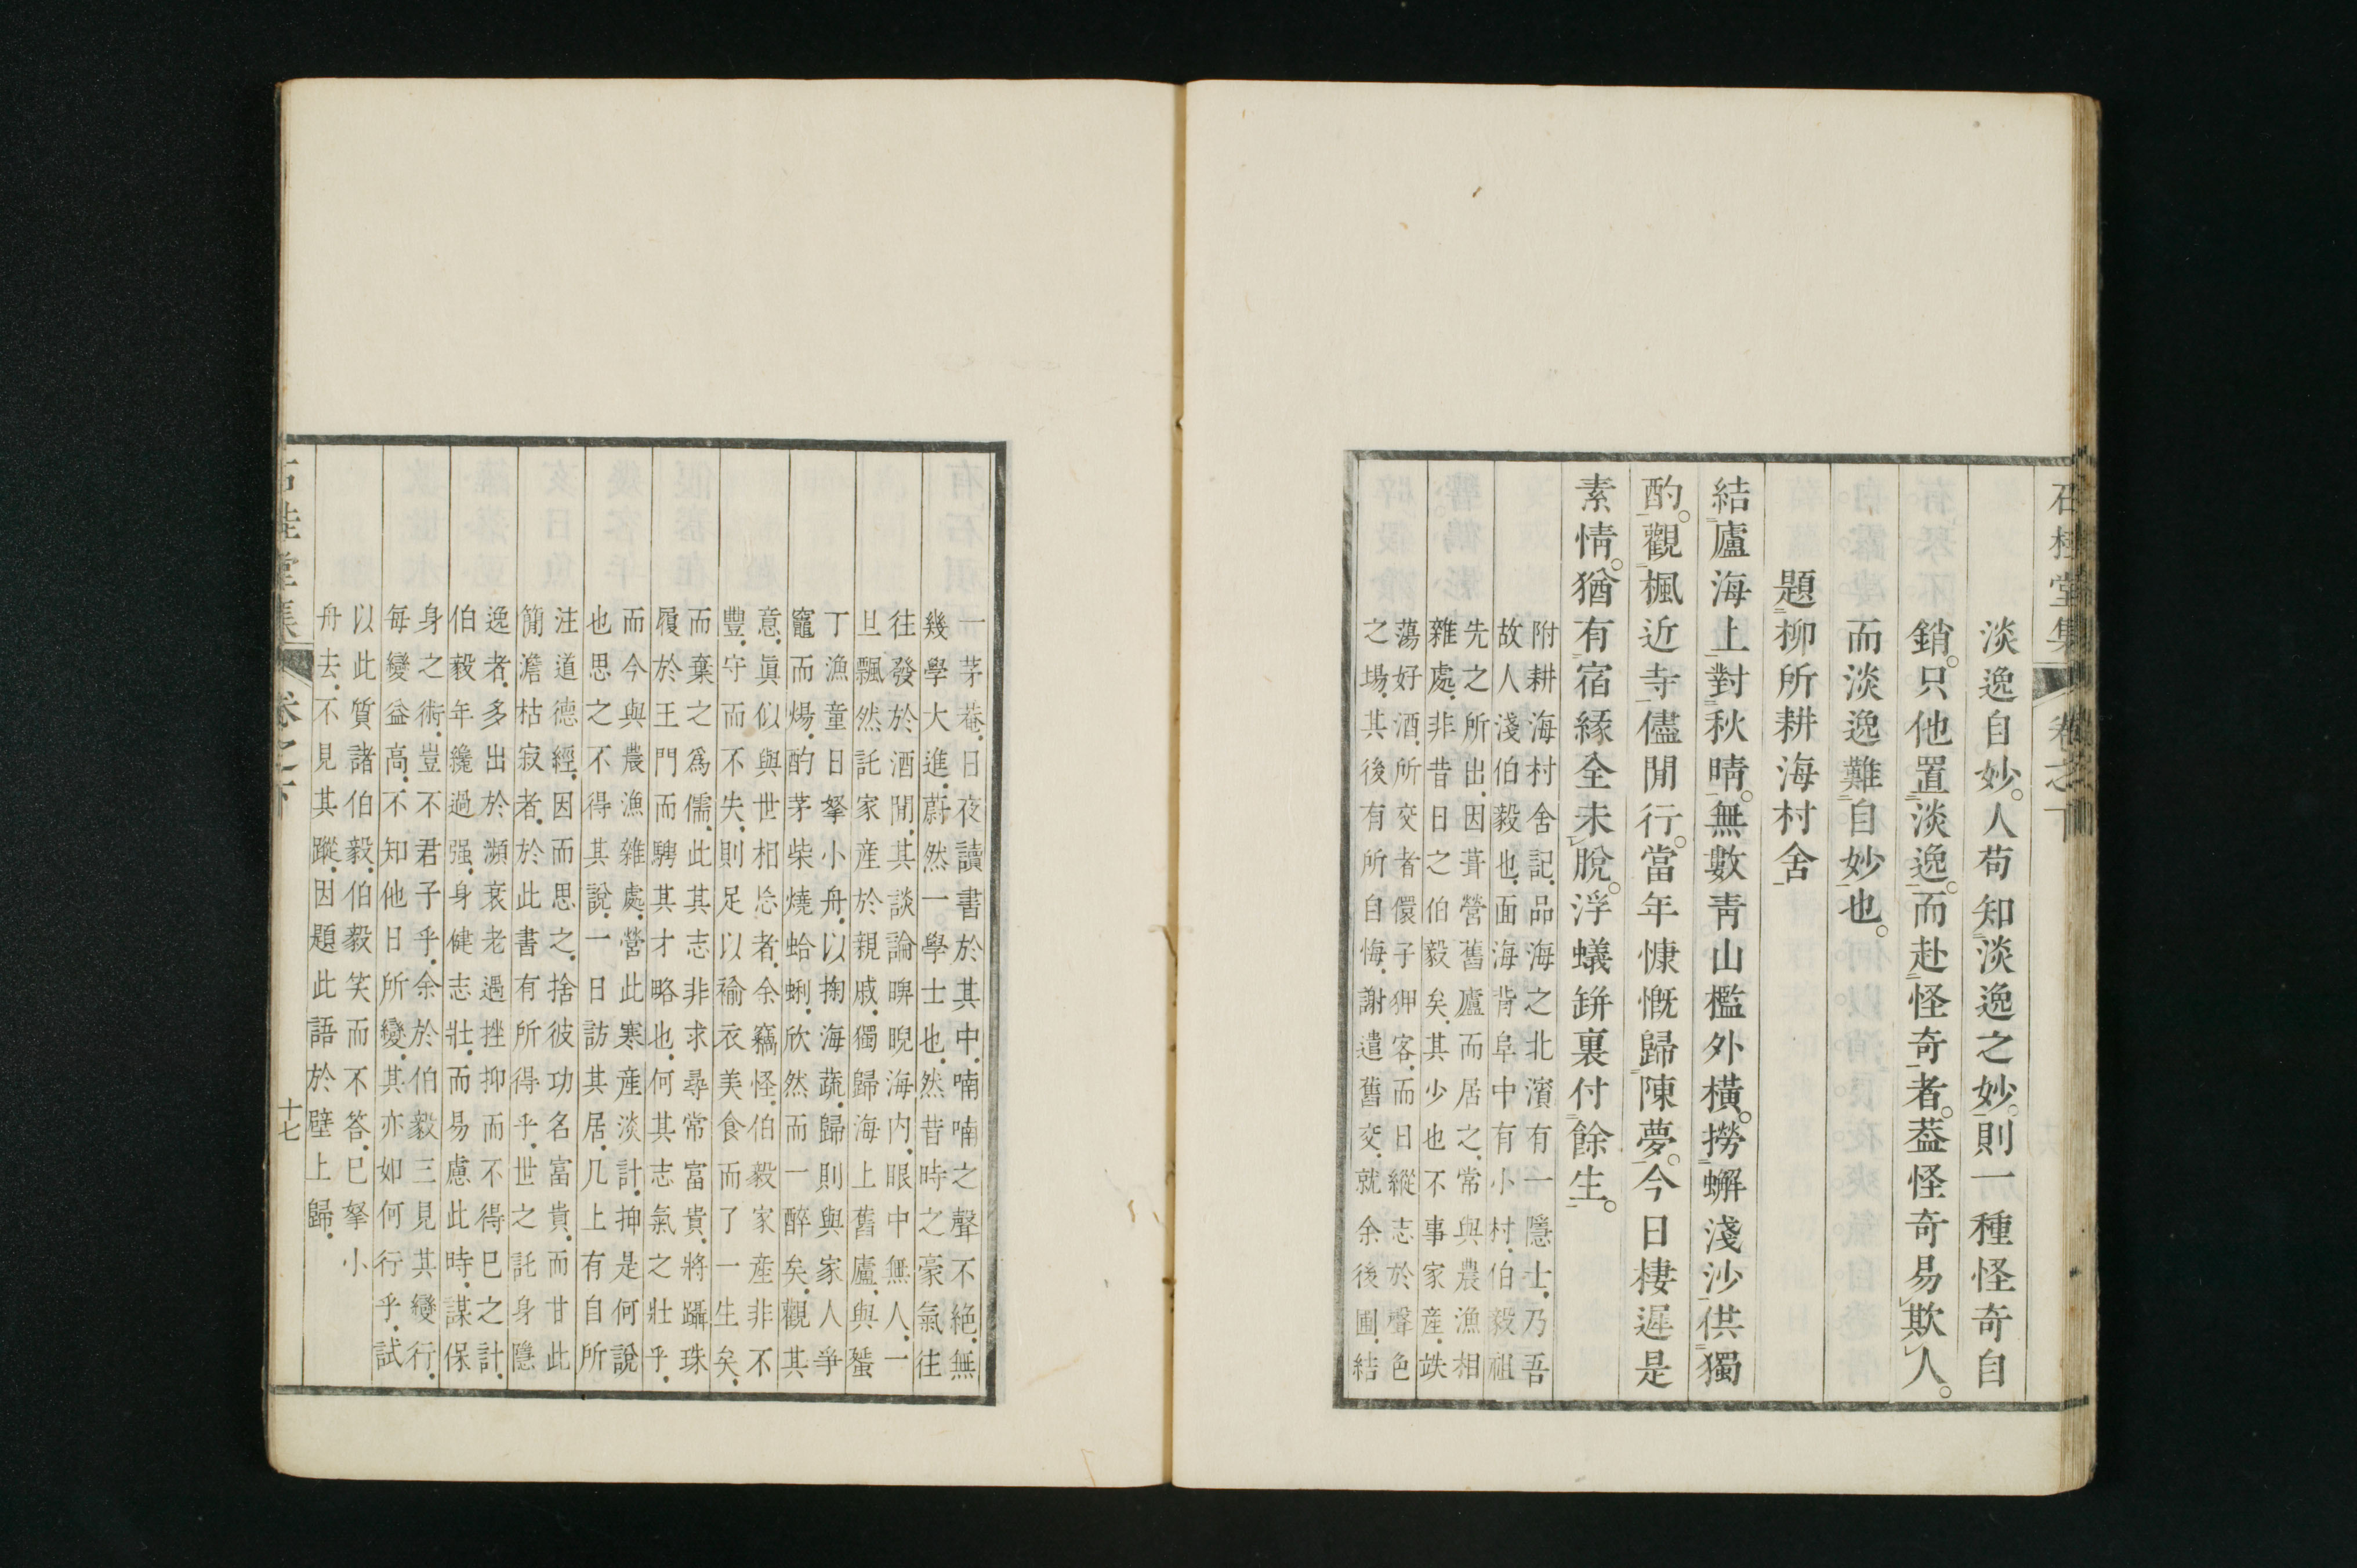 石桂堂集 卷之下
淡逸自妙。人苟知淡逸之妙。則一種怪奇自
銷。只他置淡逸。而赴怪奇者。蓋怪奇易欺人。
而淡逸難自妙也。
題柳所耕海村舍
結廬海上對秋晴。無數靑山檻外橫。撈蠏淺沙供獨
酌。觀楓近寺儘閒行。當年慷慨歸陳夢。今日棲遲是
素情。猶有宿緣全未脫。浮蟻缾裏付餘生。
附耕海村舍記。品海之北濱有一隱士。乃吾
故人淺伯毅也。面海背阜中有小村。伯毅祖
先之所出。因葺營舊廬而居之。常與農漁相
雜處。非昔日之伯毅矣。其少也不事家産。跌
蕩好酒。所交者儇子狎客。而日縱志於聲色
之場。其後有所自悔。謝遣舊交。就余後圃。結
一茅菴。日夜讀書於其中。喃喃之聲不絶。無
幾學大進。蔚然一學士也。然昔時之豪氣往
往發於酒閒。其談論睥睨海内。眼中無人。一
旦飄然託家産於親戚。獨歸海上舊廬。與蜑
丁漁童日拏小舟。以掬海蔬。歸則與家人爭
竈而煬。酌茅柴燒蛤蜊。欣然而一醉矣。觀其
意。眞似與世相忘者。余竊怪。伯毅家産非不
豐。守而不失。則足以褕衣美食而了一生矣。
而棄之爲儒。此其志非求尋常富貴。將躡珠
履於王門而騁其才略也。何其志氣之壯乎。
而今與農漁雜處。營此寒産淡計。抑是何說
也思之不得其說。一日訪其居。几上有自所
注道德經。因而思之。捨彼功名富貴。而甘此
簡澹枯寂者。於此書有所得乎。世之託身隱
逸者。多出於瀕衰老遇挫抑而不得已之計。
伯毅年纔過强。身健志壯。而易慮此時。謀保
身之術。豈不君子乎。余於伯毅三見其變行。
每變益高。不知他日所變。其亦如何行乎。試
以此質諸伯毅。伯毅笑而不答。已拏小
舟去。不見其蹤。因題此語於壁上歸。
石桂堂集 卷之下 十七